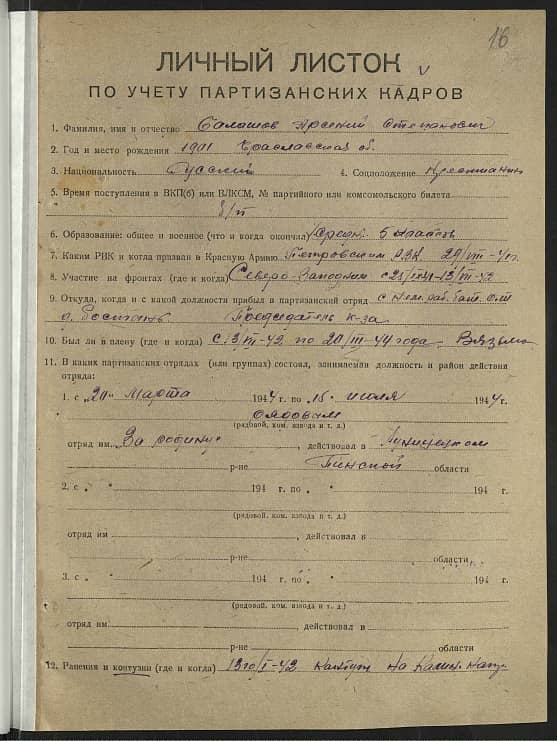 16
ЛИЧНЫЙ ЛИСТОК
ПО УЧЕТУ ПАРТИЗАНСКИХ КАДРОВ
1. Фамилия, имя и отчество Балашов Арсений Степанович
2. Год и место рождения 1911 об.
3. Национальность Русский 4. Соцположение Крестьянин
5. Время поступления в ВКП(б) или ВЛКСМ, № партийного или комсомольского билета
б/п
6. Образование: общее и военное (что и когда окончил) 5 классов
7. Каким РВК и когда призван в Красную Армию Петровским РВК 29/VIII-41г.
8. Участие на фронтах (где и когда) Северо-Западном с
9. Откуда, когда и с какой должности прибыл в партизанский отряд с нем. раб. бат.
Председатель к-за
10. Был ли в плену (где и когда) с 13/III-42 по 20/III-44 года. Вязьма
11. В каких партизанских отрядах (или группах) состоял, занимаемая должность и район действия
отряда:
1. с „20“ Марта 1944 г. по „15“ июля 1944 г.
рядовым
(рядовой, ком. взвода и т. д.)
отряд им. „За родину“, действовал в Лунинецком
р-не Пинской области
2. с „ “ 194 г. по „ “ 194 г.
(рядовой, ком. взвода и т. д.)
отряд им , действовал в
р-не области
3. с „ “ 194 г. по „ “ 194 г.
(рядовой, ком. взвода и т. д.)
отряд им. , действовал в
р-не области
12. Ранения и контузии (где и когда) 13го/I-42 На Калин. Нап.